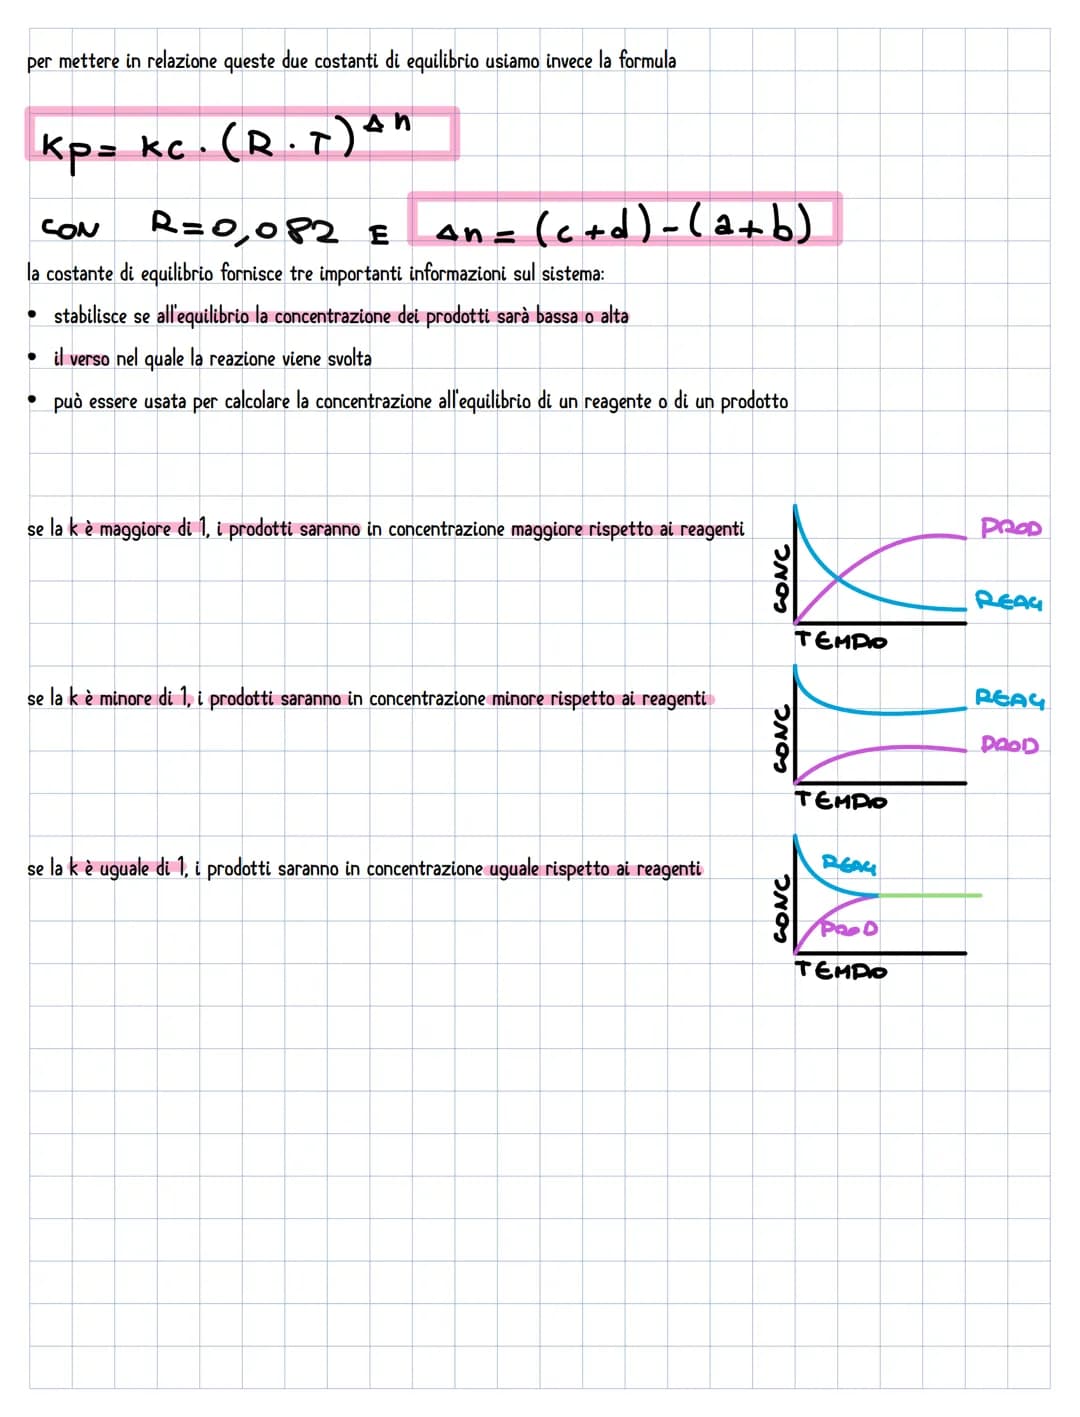 per mettere in relazione queste due costanti di equilibrio usiamo invece la formula
Kp= kc · (R · T)^Δn
CON R=0,082 E Δn = (c+d)-(a+b)
la costante di equilibrio fornisce tre importanti informazioni sul sistema:
• stabilisce se all'equilibrio la concentrazione dei prodotti sarà bassa o alta
• il verso nel quale la reazione viene svolta
• può essere usata per calcolare la concentrazione all'equilibrio di un reagente o di un prodotto
se la k è maggiore di 1, i prodotti saranno in concentrazione maggiore rispetto ai reagenti
CONC
PROD
REAG
TEMPO
se la k è minore di 1, i prodotti saranno in concentrazione minore rispetto ai reagenti
CONC
REAG
PROD
TEMPO
se la k è uguale di 1, i prodotti saranno in concentrazione uguale rispetto ai reagenti
CONC
REAG
PROD
TEMPO